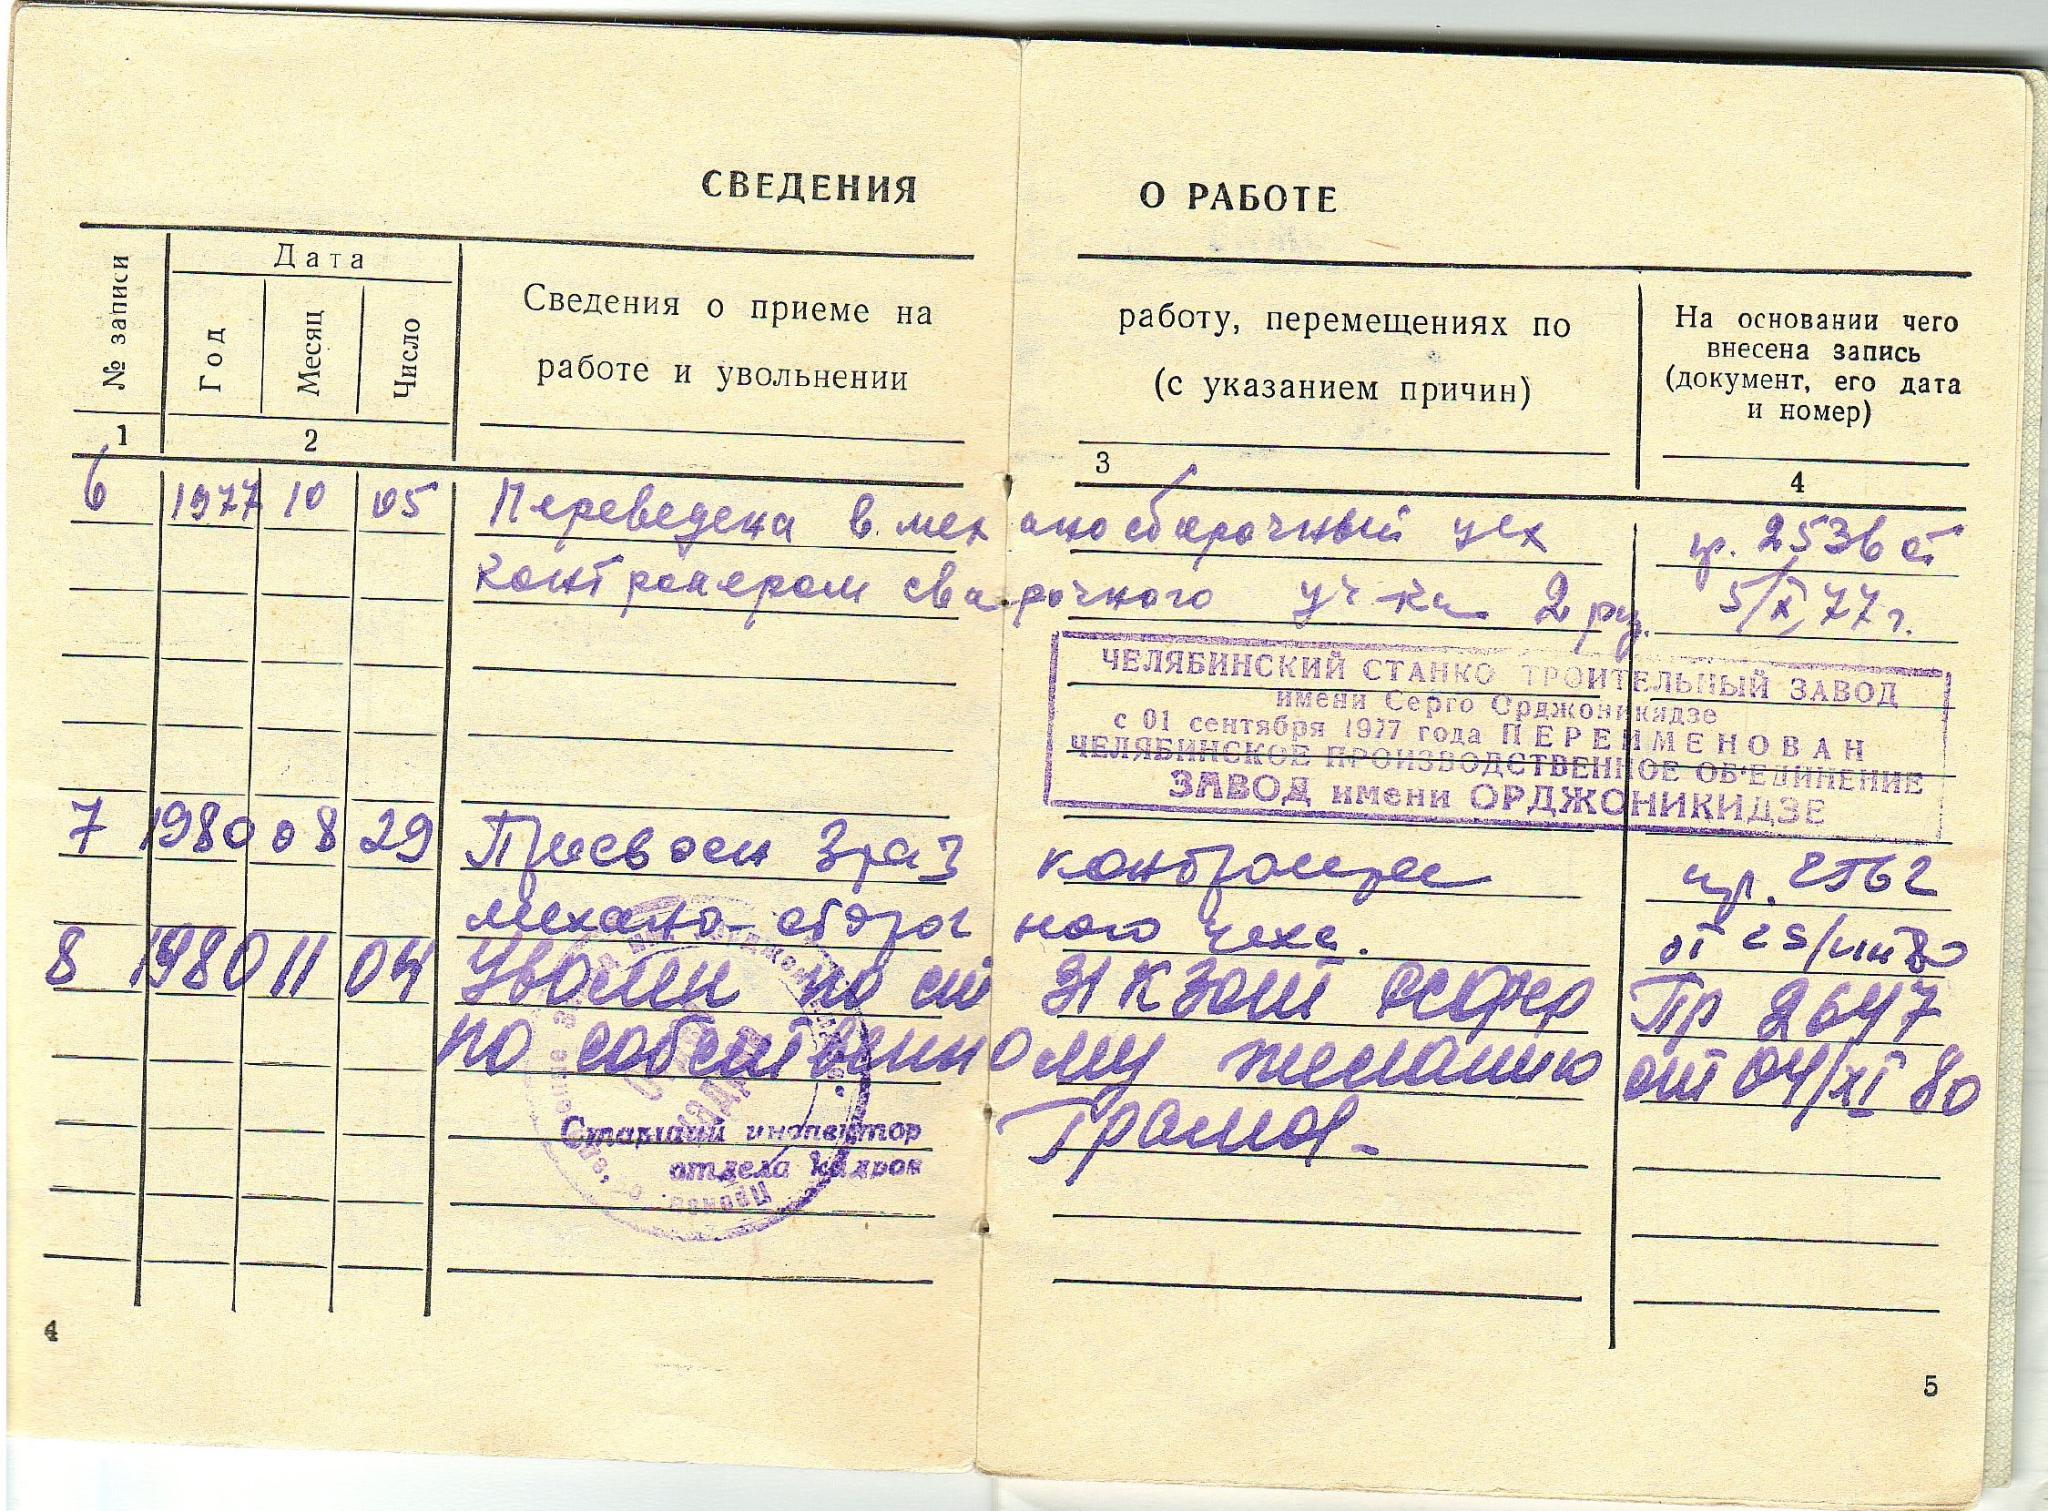 СВЕДЕНИЯ О РАБОТЕ
№ записи
Дата
Год
Месяц
Число
Сведения о приеме на работу, перемещениях по
работе и увольнении (с указанием причин)
На основании чего
внесена запись
(документ, его дата
и номер)
1 2 3 4
6 1977 10 05 Переведена в механосборочный цех пр. 2536 от
контролером сварочного уч-ка 2 раз. 5/X 77 г.
ЧЕЛЯБИНСКИЙ СТАНКО ТРОИТЕЛЬНЫЙ ЗАВОД
имени Серго Орджоникидзе
с 01 сентября 1977 года ПЕРЕИМЕНОВАН
ЧЕЛЯБИНСКОЕ ПРОИЗВОДСТВЕННОЕ ОБ'ЕДИНЕНИЕ
ЗАВОД имени ОРДЖОНИКИДЗЕ
7 1980 08 29 Присвоен 3 раз контролера пр.
механо-сборочного цеха. от
8 1980 11 04 Уволен по ст 31 КЗОТ РСФСР Пр 2647
по собственному желанию от 04/XI 80
Старший инспектор
отдела кадров
4
5